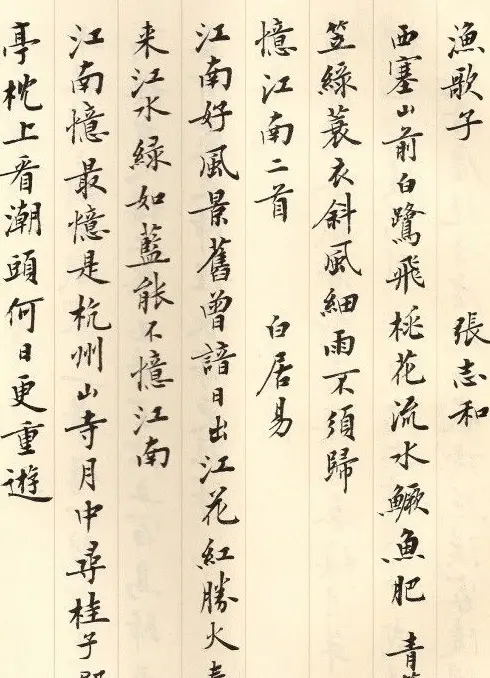 漁歌子 張志和
西塞山前白鷺飛桃花流水鱖魚肥 青
笠綠蓑衣斜風細雨不須歸
憶江南二首 白居易
江南好風景舊曾諳日出江花紅勝火
来江水綠如藍能不憶江南
江南憶最憶是杭州山寺月中尋桂子
亭枕上看潮頭何日更重遊